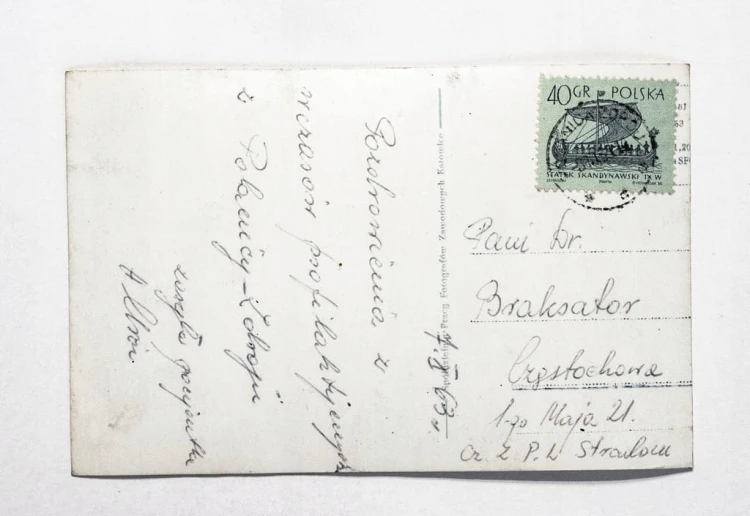 Pozdrowienia z
wczasów profilaktycznych
z Polanicy-Zdroju
zasyła pacjentka
7. II 63 r.
Pracy Fotografów Zawodowych Katowice
40 GR POLSKA
STATEK SKANDYNAWSKI IX W
Pani Dr.
Braksator
Częstochowa
1-go Maja 21.
Cz. Z. P. L. Stradom